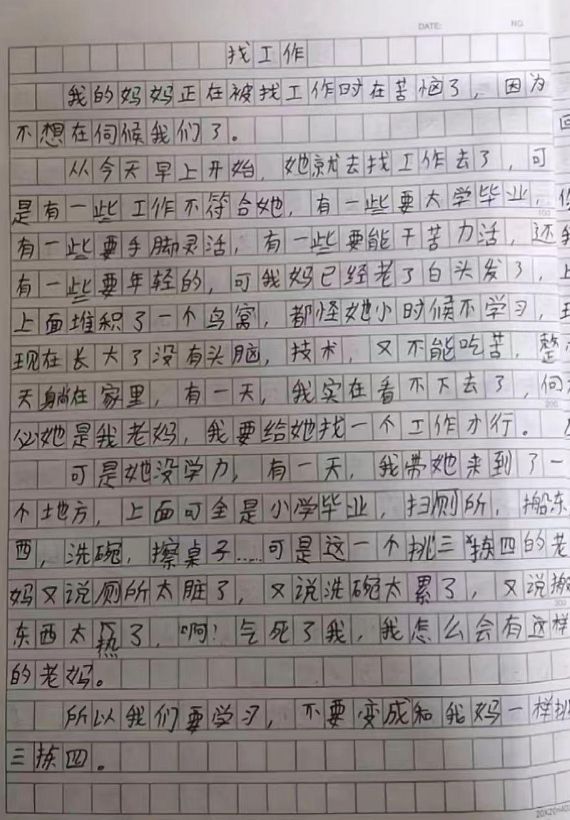 DATE: NO.
找工作
我的妈妈正在被找工作时在苦恼了，因为
不想在伺候我们了。
从今天早上开始，她就去找工作去了，可
是有一些工作不符合她，有一些要大学毕业，
有一些要手脚灵活，有一些要能干苦力活，还
有一些要年轻的，可我妈已经老了白头发了，上
上面堆积了一个鸟窝，都怪她小时候不学习，
现在长大了没有头脑，技术，又不能吃苦，整
天躺在家里，有一天，我实在看不下去了，何
她是我老妈，我要给她找一个工作才行。
可是她没学力，有一天，我带她来到了一
个地方，上面可全是小学毕业，扫厕所，搬东
西，洗碗，擦桌子……可是这一个挑三拣四的老
妈又说厕所太脏了，又说洗碗太累了，又说搬
东西太热了，啊！气死了我，我怎么会有这样
的老妈。
所以我们要学习，不要变成和我妈一样挑
三拣四。